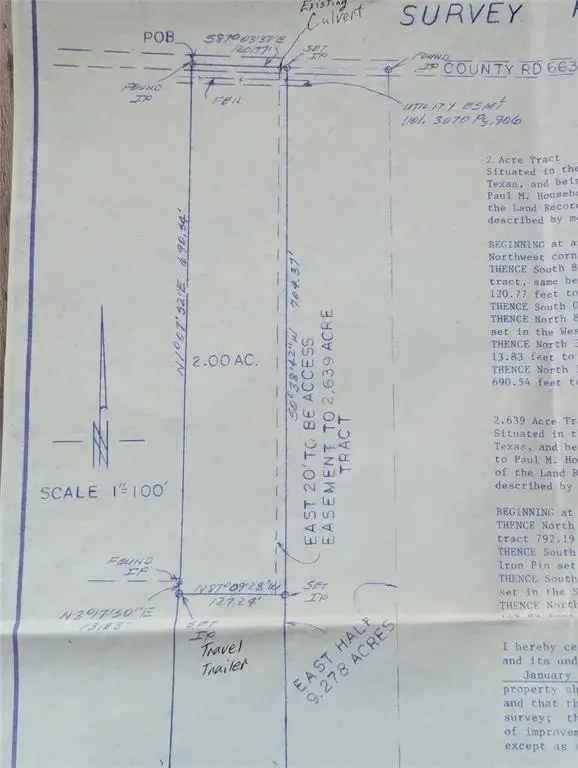 SURVEY
Existing
Culvert
POB
S87°03'37"E
120.77'
SET
IP
FOUND
IP
COUNTY RD 663
FOUND
IP
UTILITY ESMT
Vol. 3070 Pg. 906
N1°57'52"E 690.54'
2.00 AC.
S0°38'42"W 704.37'
EAST 20' TO BE ACCESS
EASEMENT TO 2.639 ACRE
TRACT
SCALE 1"=100'
FOUND
IP
N87°09'28"W
127.24'
SET
IP
N3°17'50"E
13.83'
SET
IP
Travel
Trailer
EAST HALF
9.278 ACRES
2 Acre Tract
Situated in the
Texas, and bein
Paul M. Househo
the Land Recor
described by m
BEGINNING at a
Northwest corn
THENCE South 8
tract, same be
120.77 feet to
THENCE South 0
THENCE North 8
set in the Wes
THENCE North 3
13.83 feet to
THENCE North
690.54 feet to
2.639 Acre Tr
Situated in t
Texas, and be
to Paul M. Ho
of the Land R
described by
BEGINNING at
THENCE North
tract 792.19
THENCE South
Iron Pin set
THENCE South
set in the S
THENCE North
I hereby ce
and its und
January
property sh
and that th
survey; th
of improvem
except as s